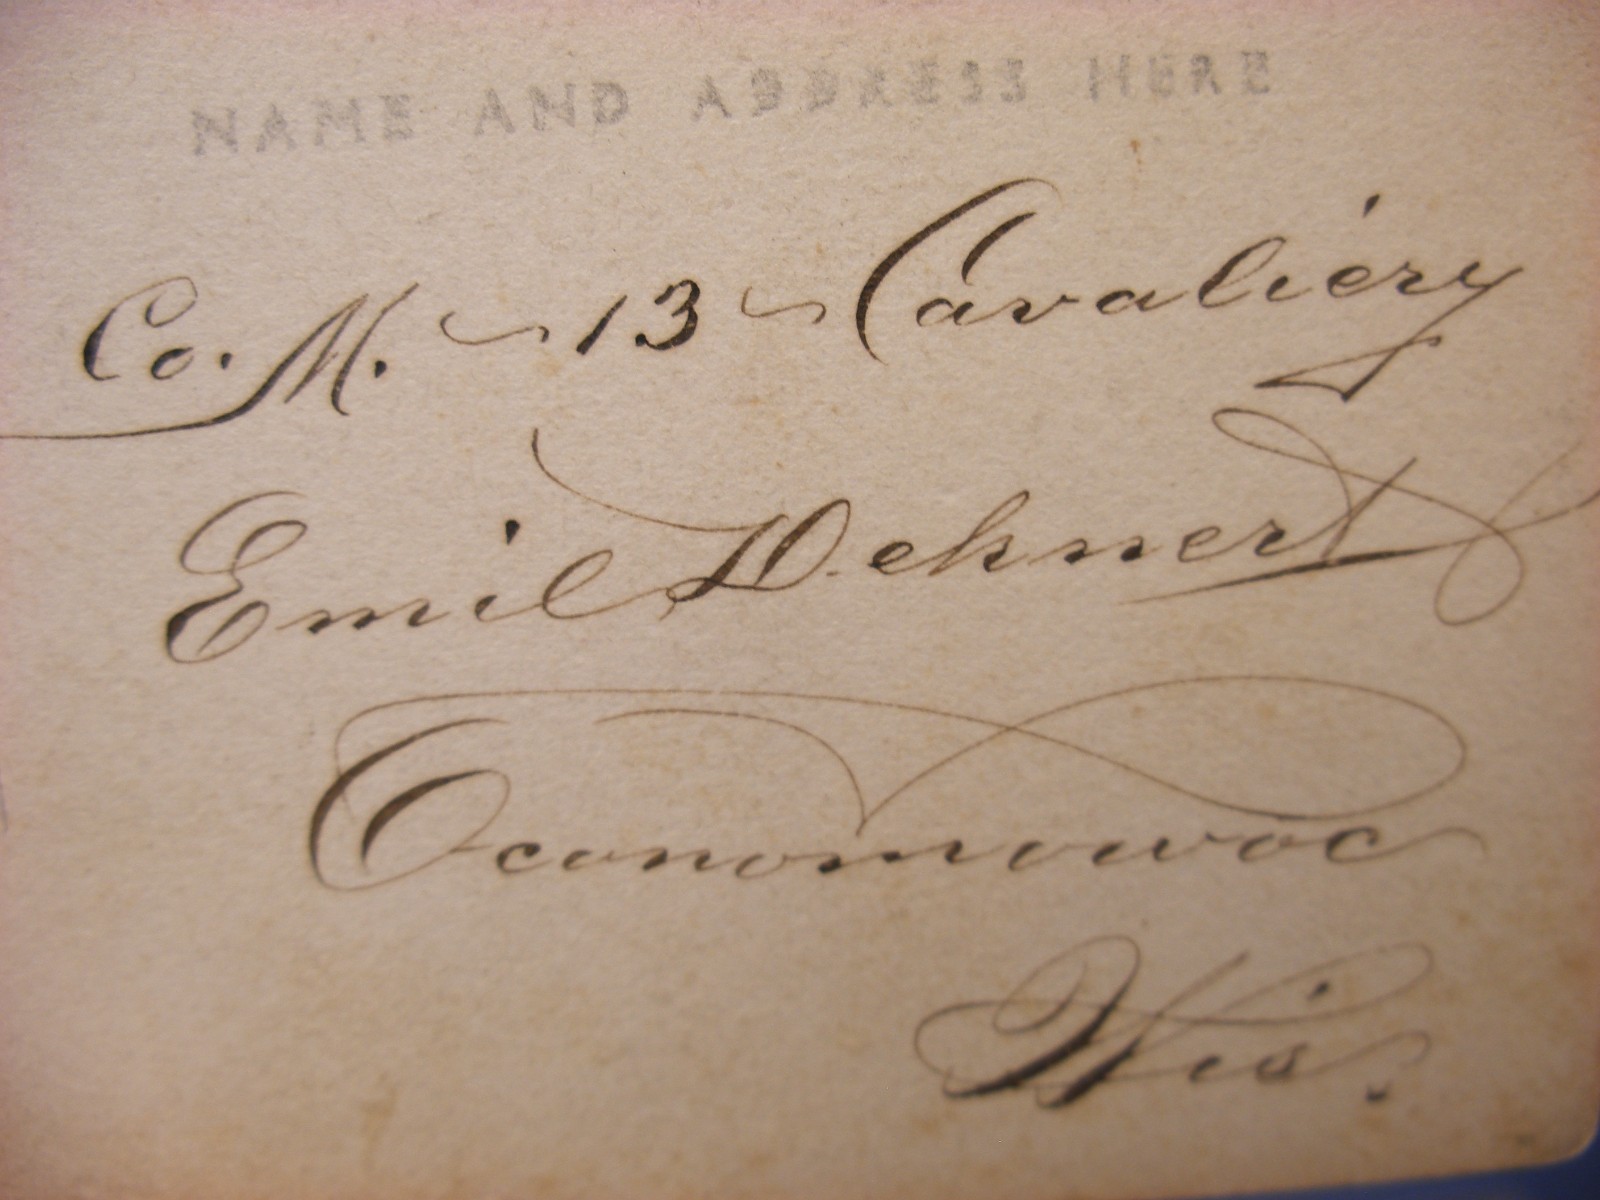 NAME AND ADDRESS HERE
Co. M. ~ 13 ~ Cavaliery
Emil Dehnert
Oconomowoc
Wis.